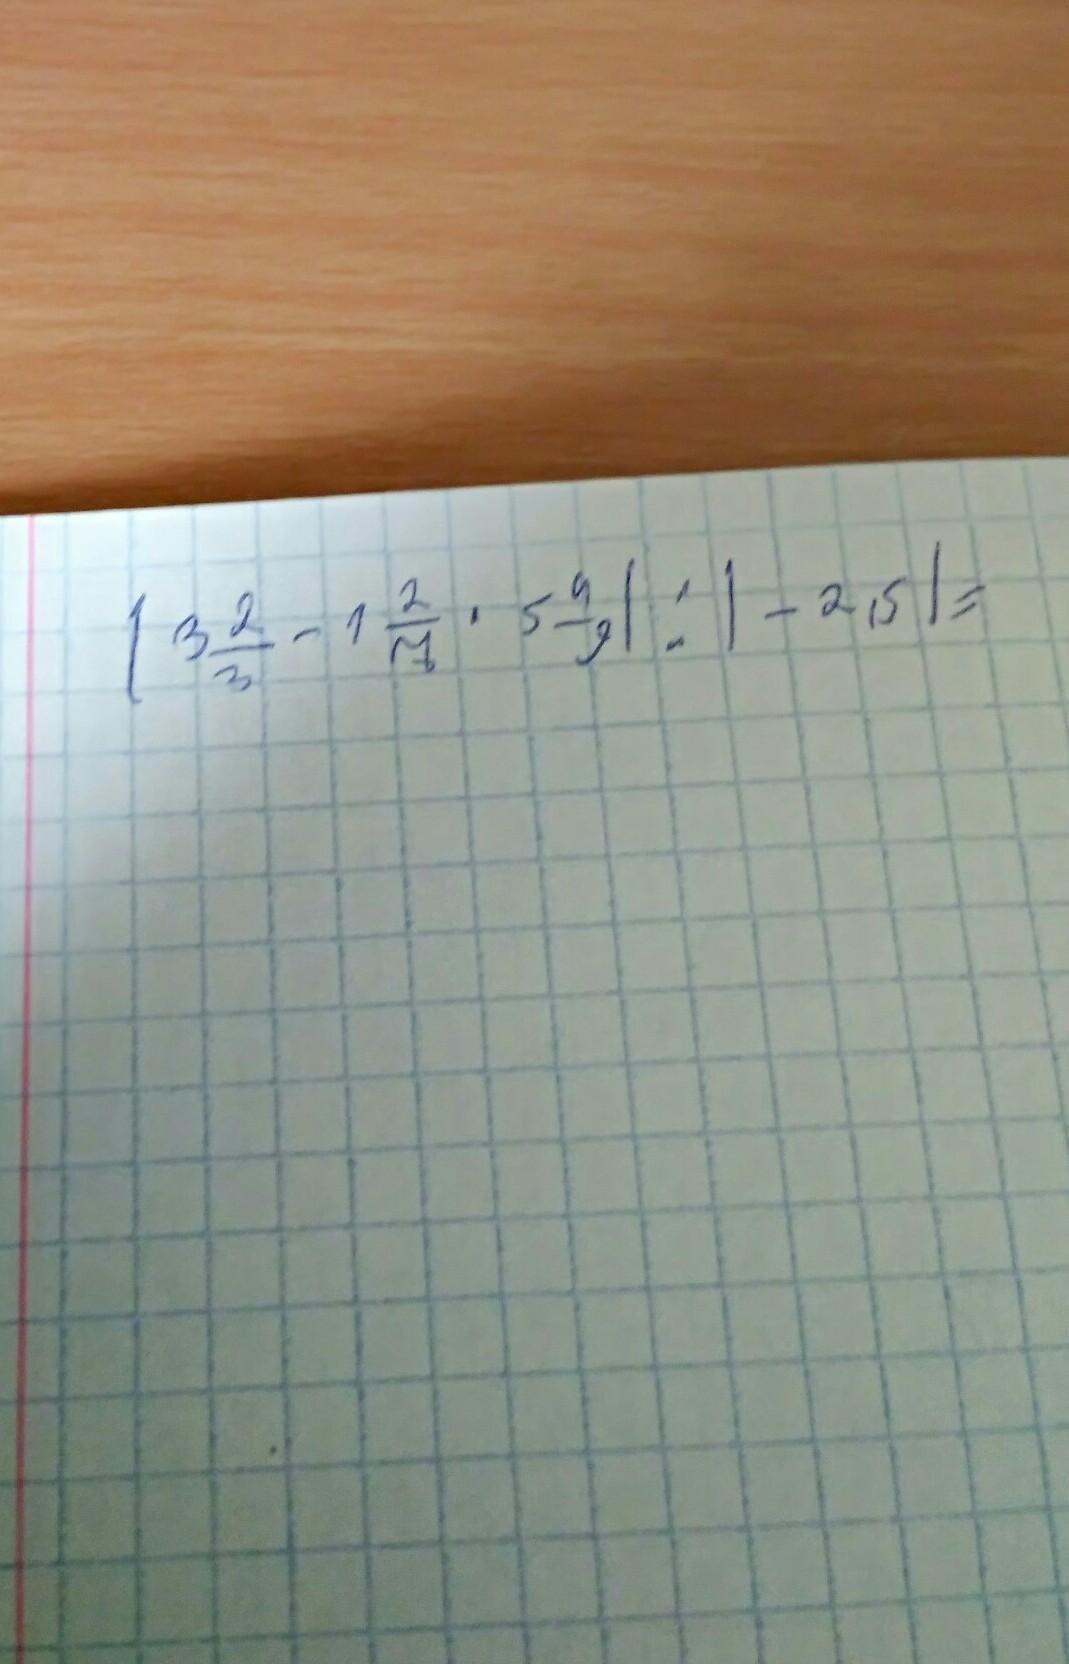 | 3 2/3 - 1 2/7 · 5 4/9 | : | - 2,5 | =